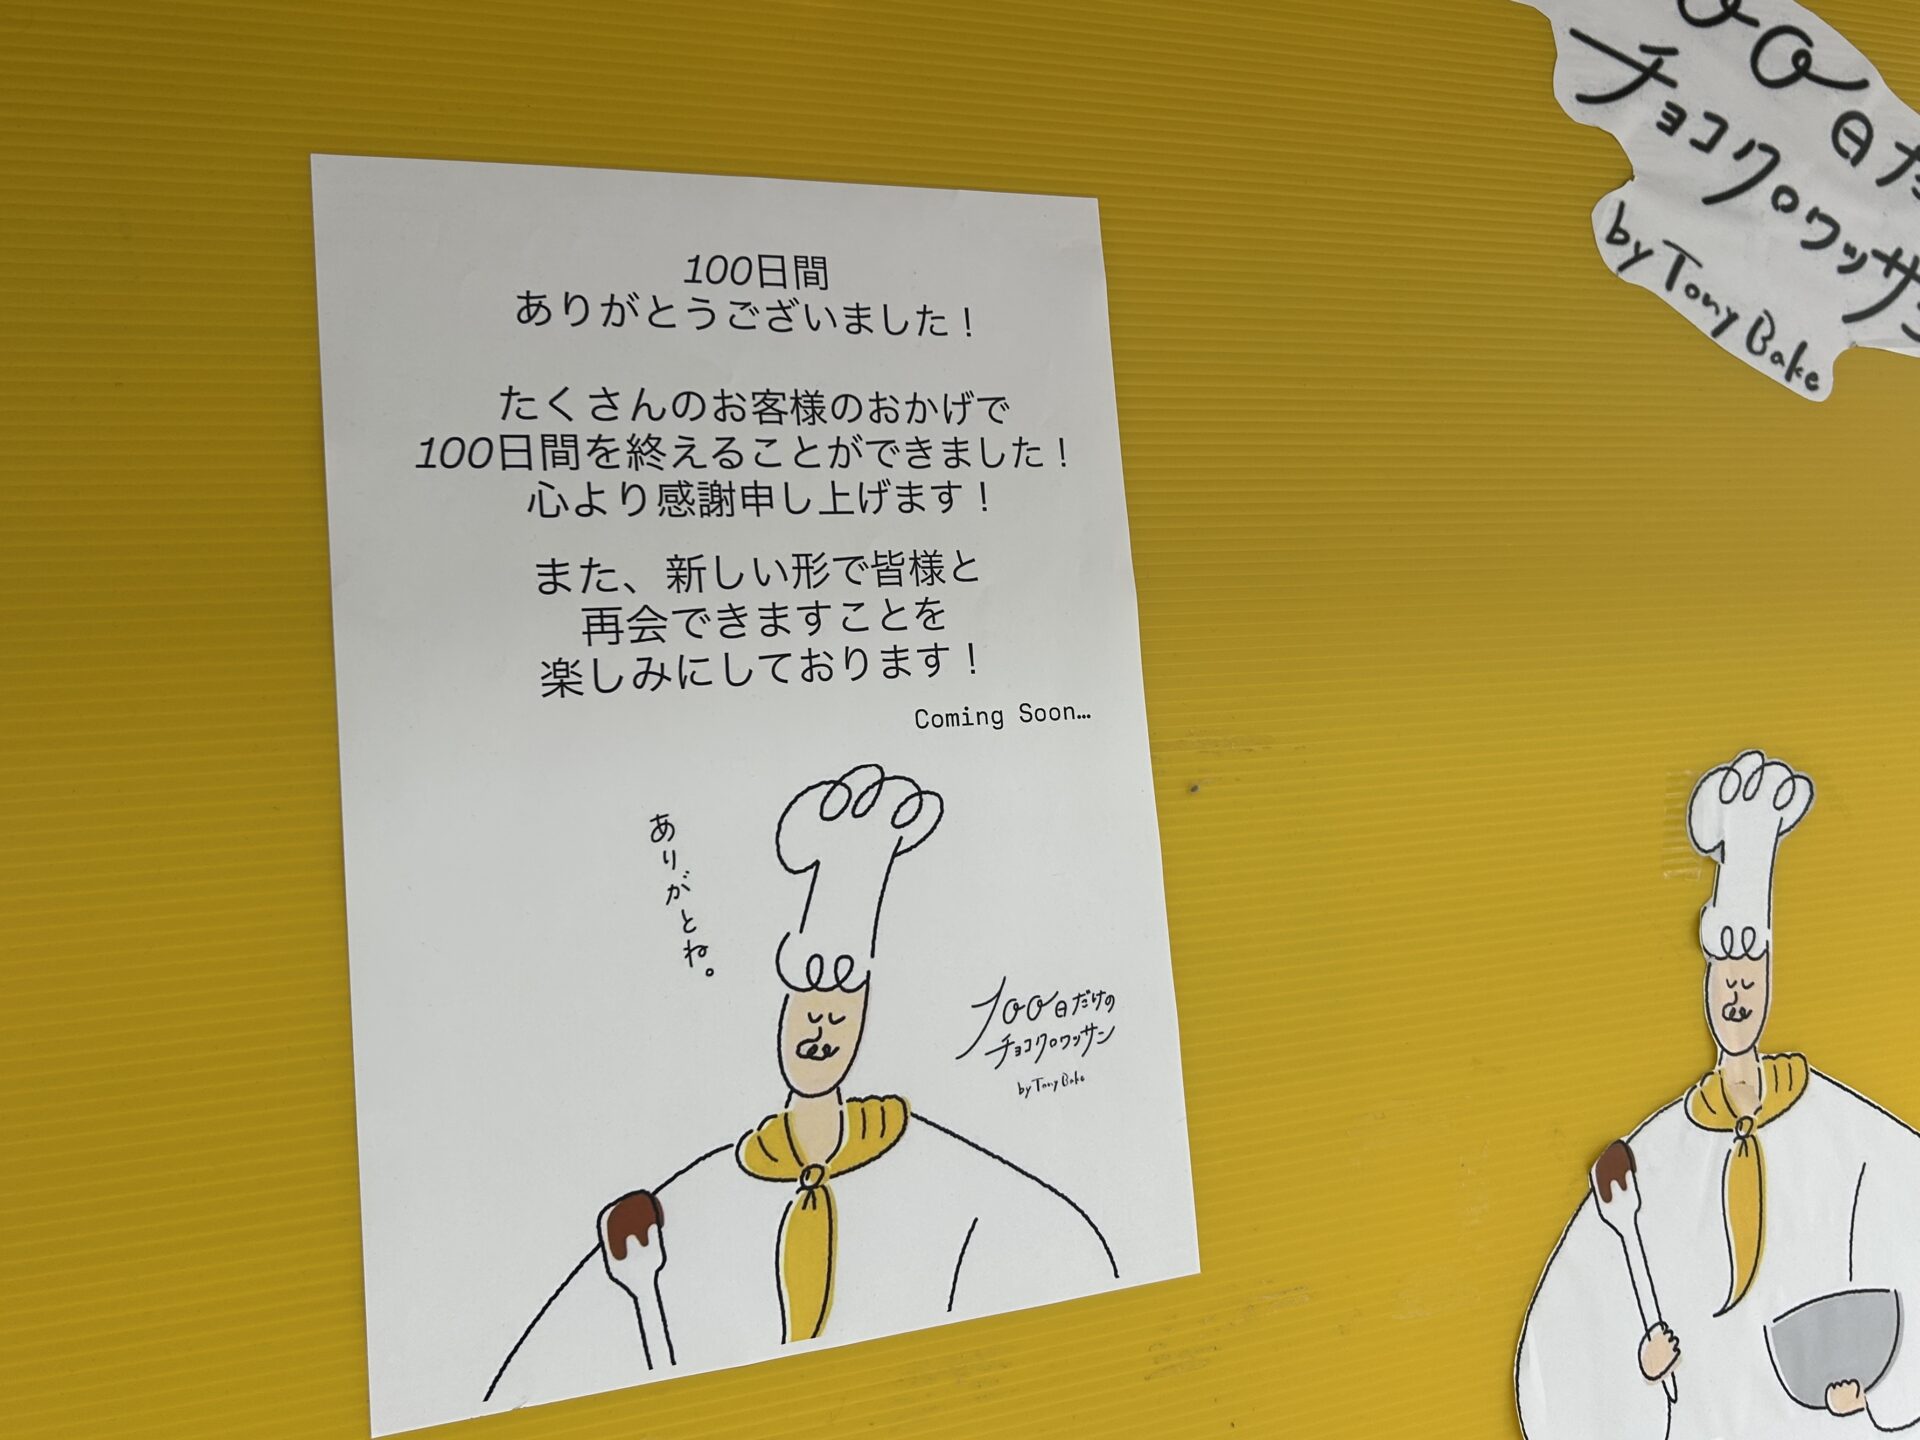 100日間
ありがとうございました！
たくさんのお客様のおかげで
100日間を終えることができました！
心より感謝申し上げます！
また、新しい形で皆様と
再会できますことを
楽しみにしております！
Coming Soon…
ありがとね。
100日だけの
チョコクロワッサン
by Tony Bake
00日だ
チョコクロワッサン
by Tony Bake